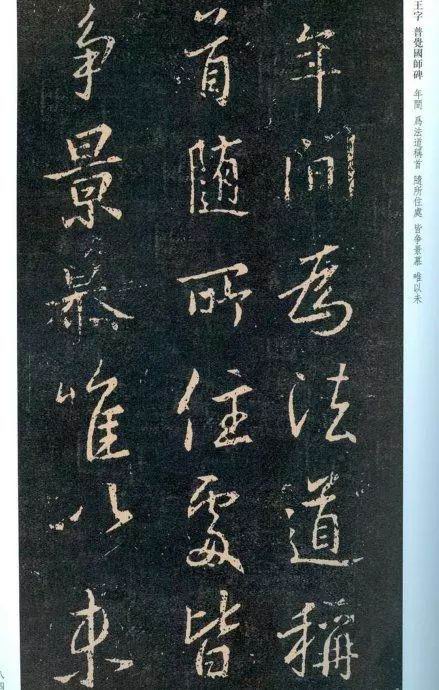 王字 普覺國師碑 年間 爲法道稱首 隨所住處 皆争景慕 唯以未
年間為法道稱
首随所住處皆
争景慕唯以未